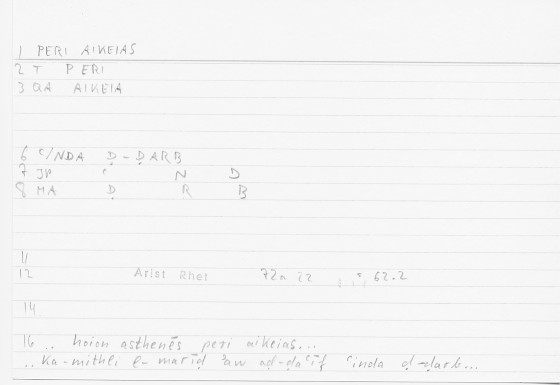 1 PERI AIKEIAS
2 T PERI
3 QA AIKEIA
6 ʿ/NDA Ḍ-ḌARB
7 JP ʿ N D
8 MA Ḍ R B
11
12 Arist Rhet 72a 22 62.2
14
16 .. hoion asthenēs peri aikeias...
.. Ka-mithli l-marīḍ ʾaw aḍ-ḍaʿīf ʿinda ḍ-ḍarb...